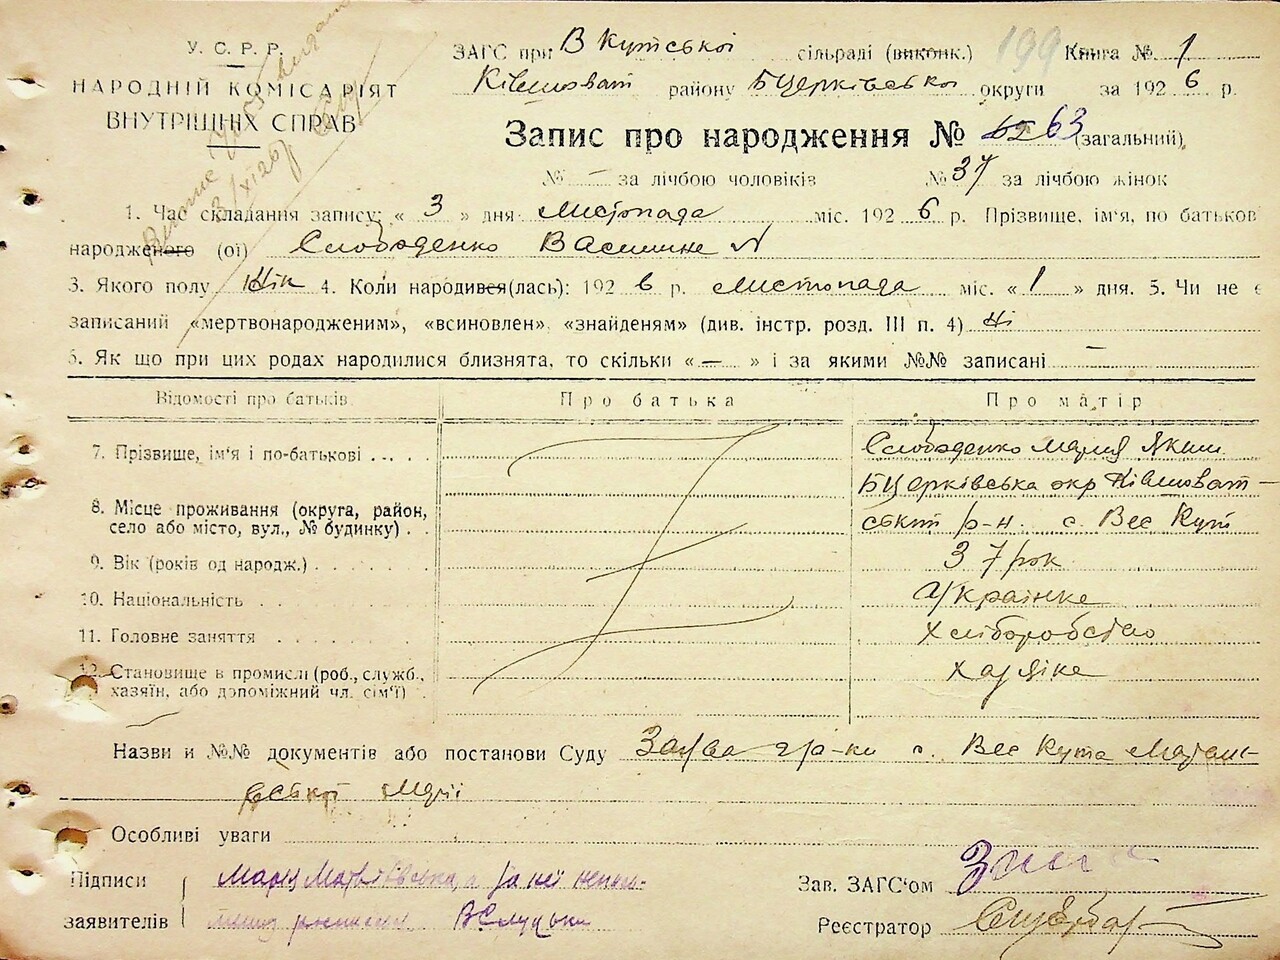 У. С. Р. Р.
НАРОДНІЙ КОМІСАРІЯТ
ВНУТРІШНІХ СПРАВ
ЗАГС при В Кутській сільраді (виконк.) 199 Книга № 1
Ківшоват району БЦерківської округи за 1926 р.
Запис про народження № 62 63 (загальний)
№ — за лічбою чоловіків № 37 за лічбою жінок
1. Час складання запису: « 3 » дня Листопада міс. 1926 р. Прізвище, ім'я, по батьков
народженого (ої) Слободенко
3. Якого полу жін 4. Коли народився(лась): 1926 р. Листопада міс. « 1 » дня. 5. Чи не є
записаний «мертвонародженим», «всиновлен», «знайденям» (див. інстр. розд. III п. 4) Ні
6. Як що при цих родах народилися близнята, то скільки « — » і за якими №№ записані —
Відомості про батьків Про батька Про матір
7. Прізвище, ім'я і по-батькові Слободенко Мария Яким
8. Місце проживання (округа, район, село або місто, вул., № будинку) БЦерківська окр Ківшоват-
ський р-н. с. Вес Кут
9. Вік (років од народж.) 37 рок
10. Національність Українка
11. Головне заняття Хліборобство
12. Становище в промислі (роб., служб., хазяїн, або допоміжний чл. сім'ї) Хазяйка
Назви и №№ документів або постанови Суду Заява гр-ки с. Вес Кута
Марії
Особливі уваги
Підписи
заявителів
Зав. ЗАГС'ом
Реєстратор